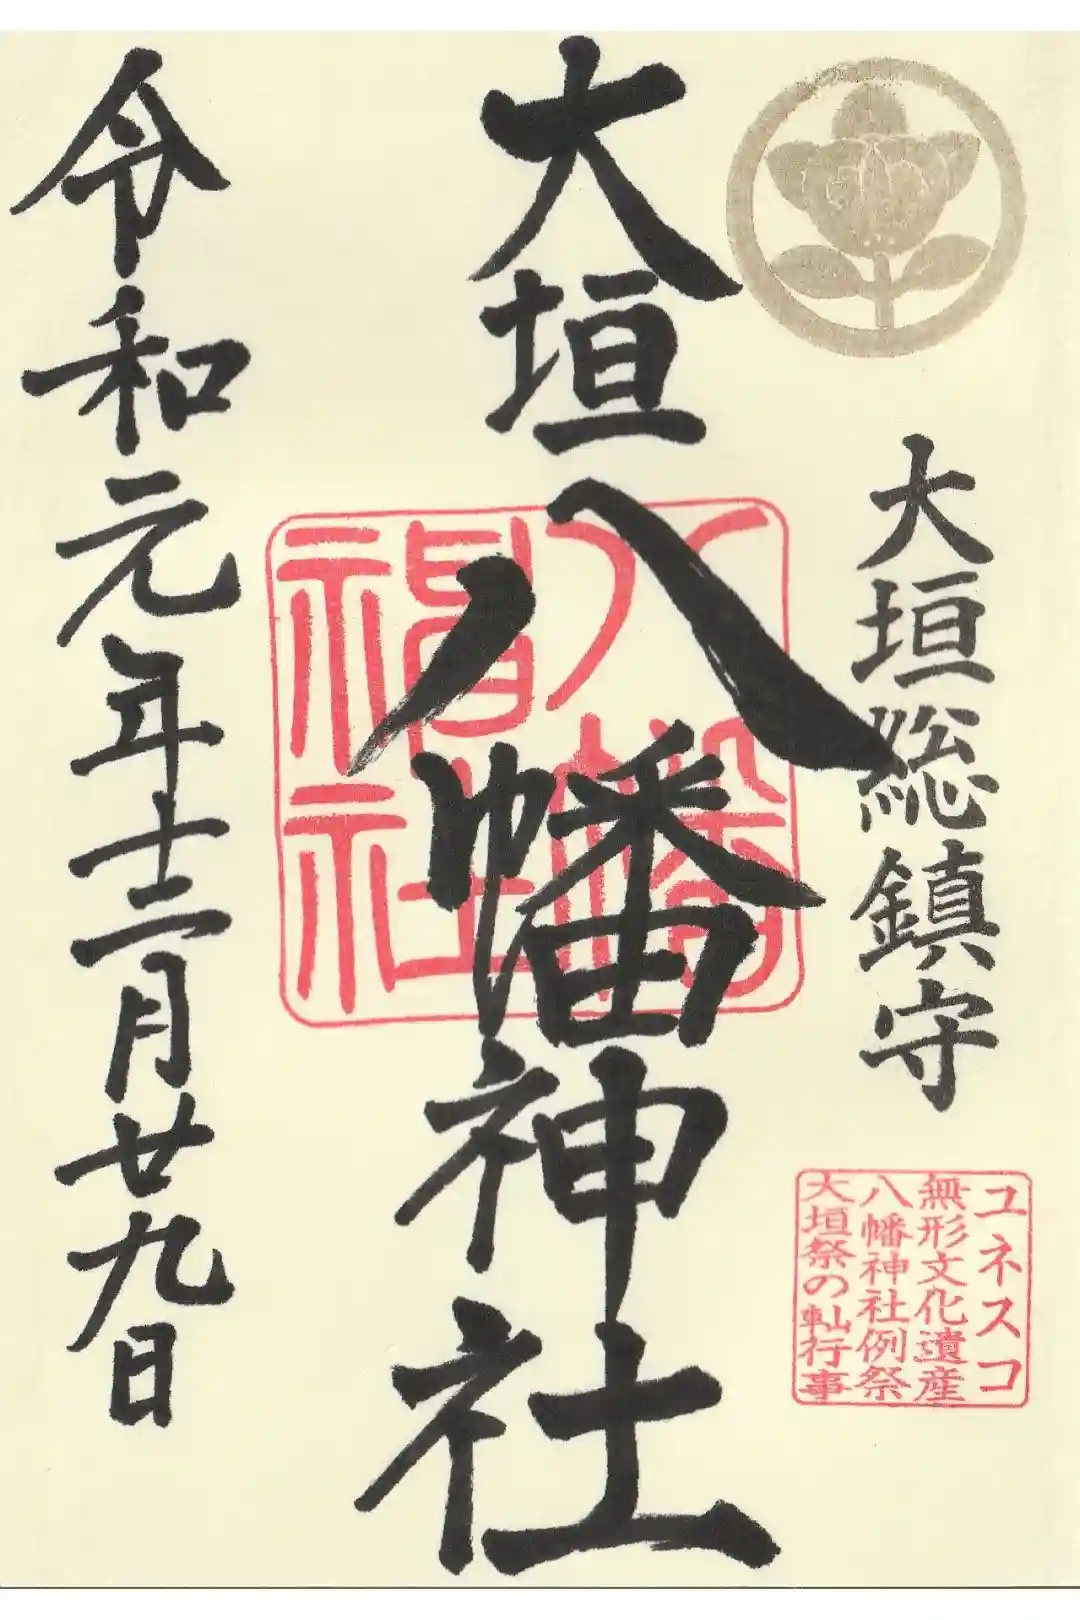 大垣総鎮守
ユネスコ
無形文化遺産
八幡神社例祭
大垣祭の軕行事
大垣八幡神社
八幡
神社
令和元年十二月廿九日